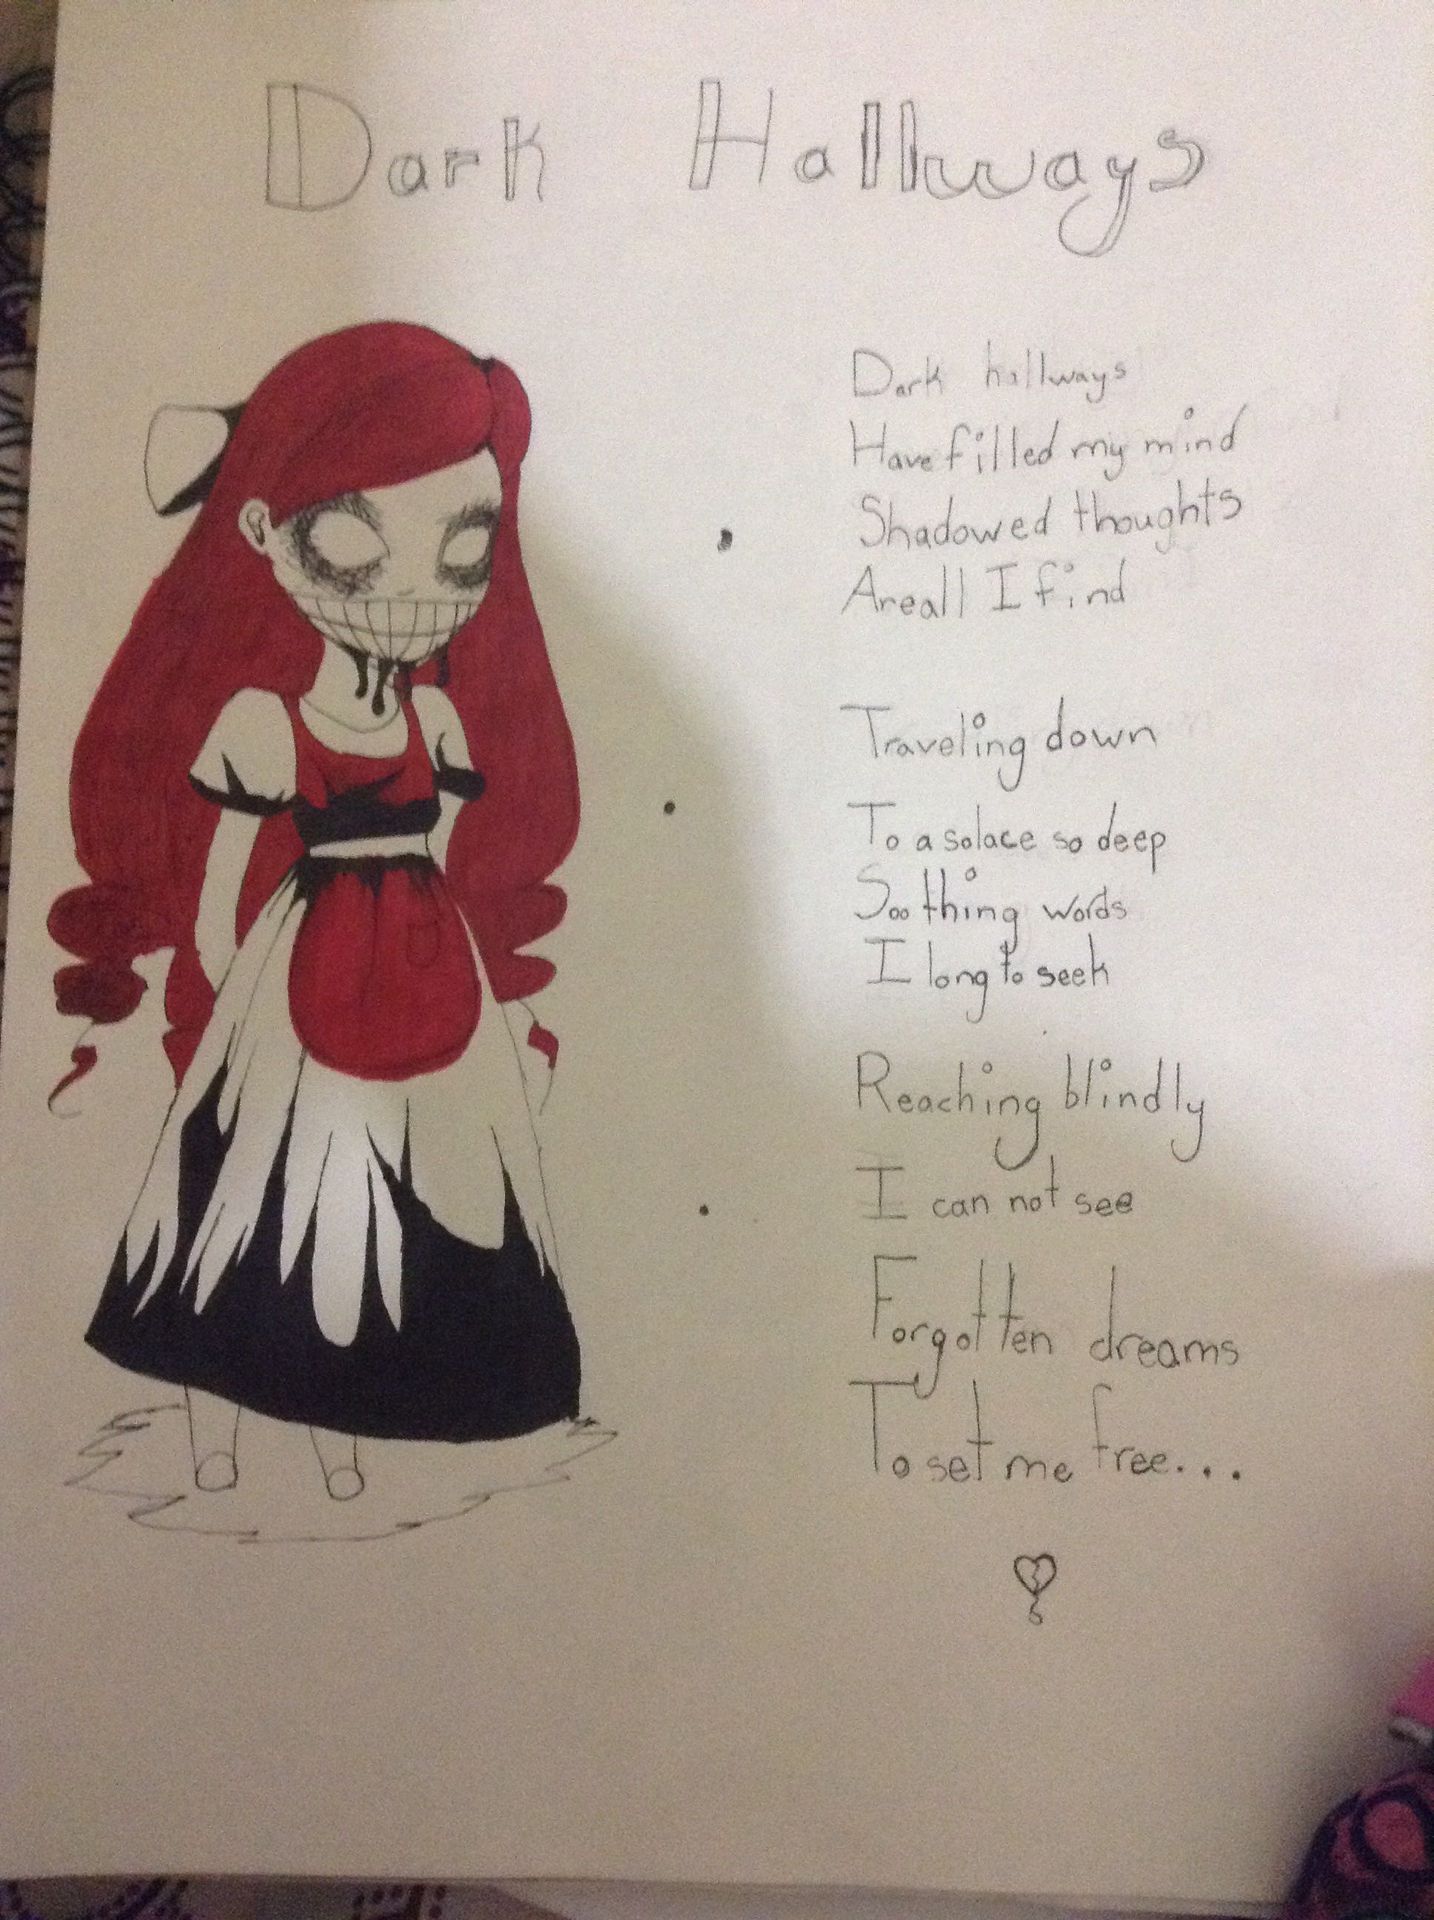 Dark Hallways
Dark hallways
Have filled my mind
Shadowed thoughts
Are all I find
Traveling down
To a solace so deep
Soothing words
I long to seek
Reaching blindly
I can not see
Forgotten dreams
To set me free...